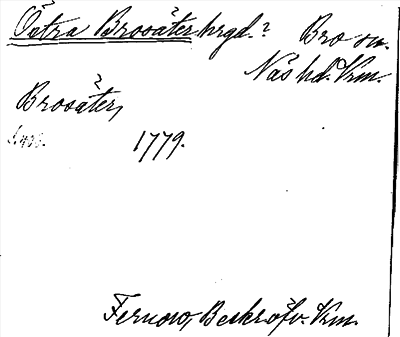 Östra Brosäter hrgd.? Bro sn.
Näs hd. Vrm.
Brosäter,
1779.
Fernow, Beskrifv. Vrm.